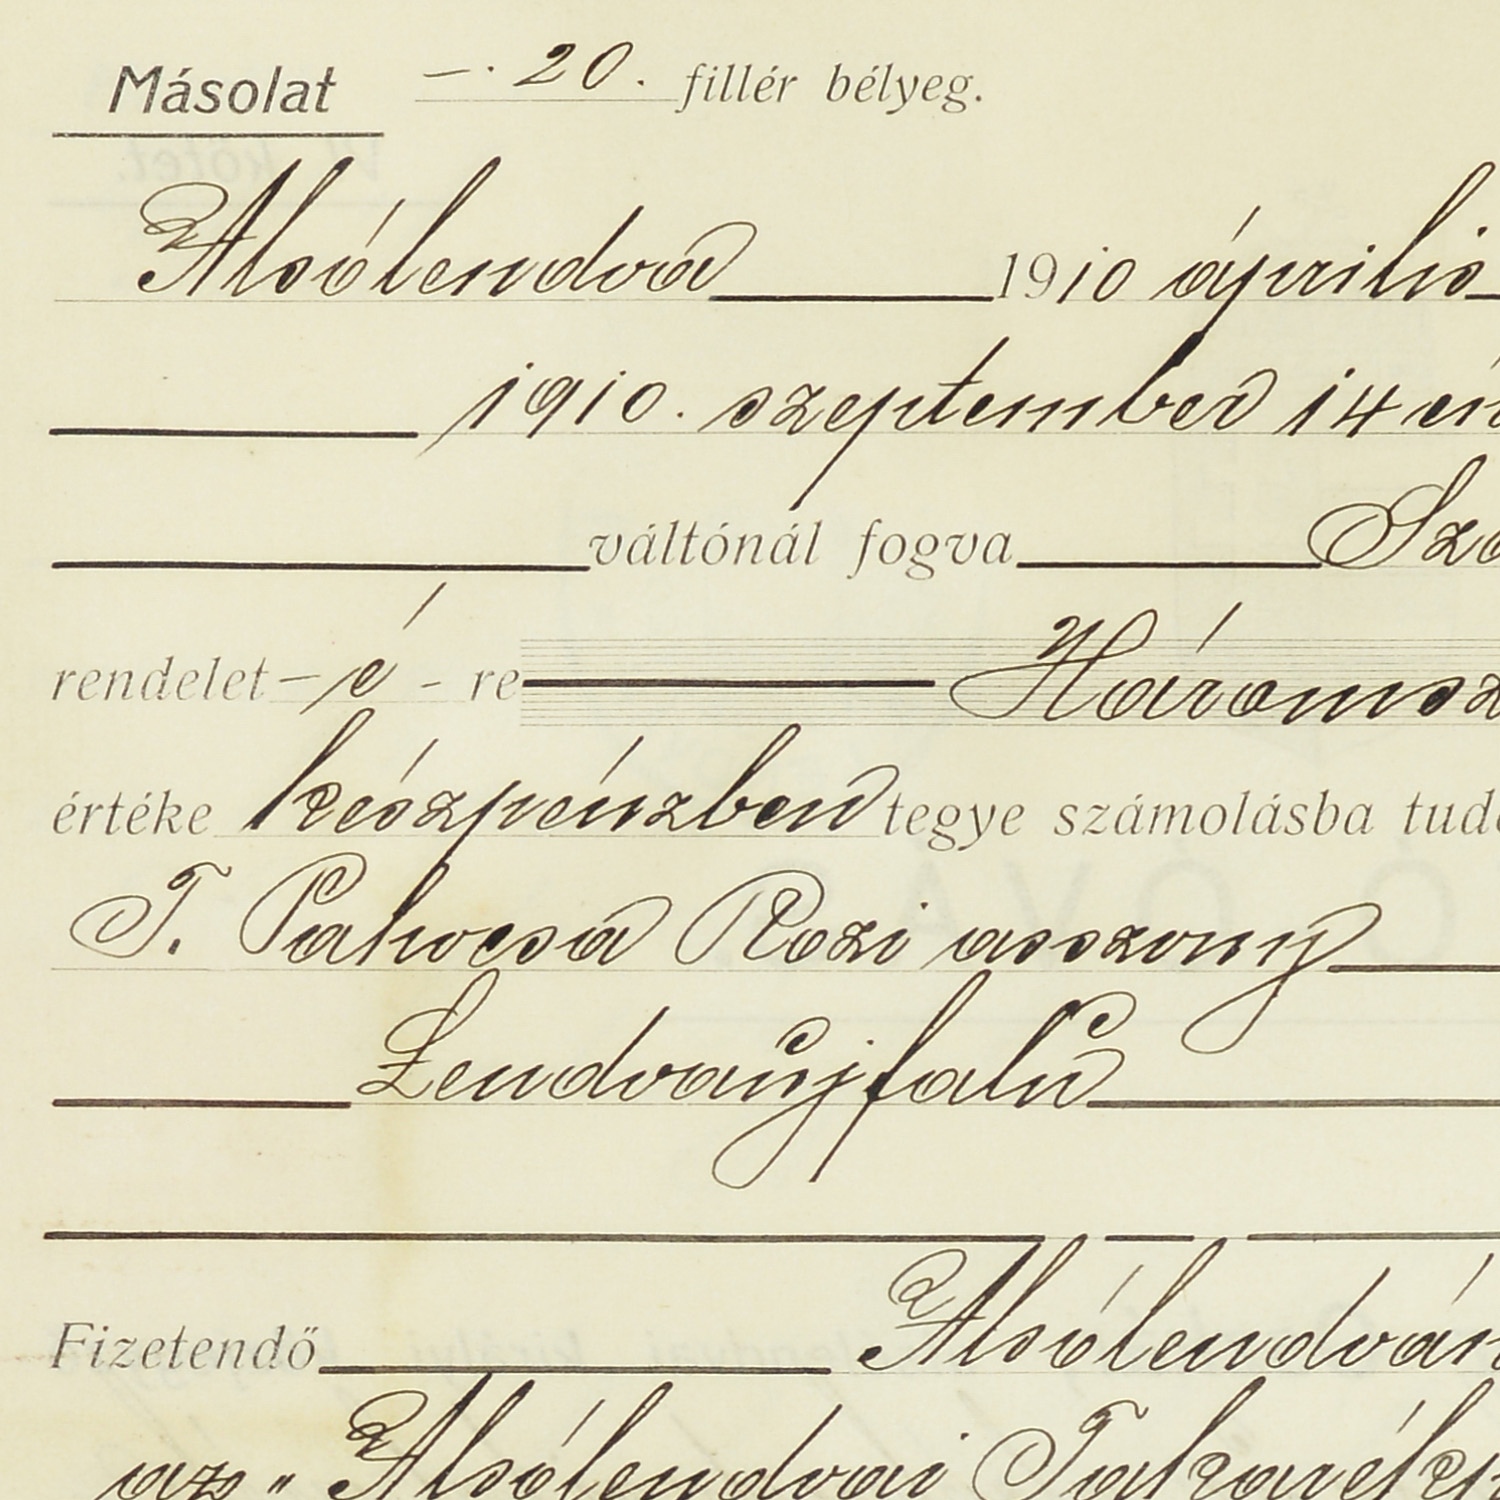 Másolat –. 20. fillér bélyeg.
Alsólendva 1910 április
1910. szeptember 14 én
váltónál fogva Szá
rendelet – é - re Háromsz
értéke készpénzben tegye számolásba tudó
T. Pahocsa Rozi asszony
Lendvaújfalu
Fizetendő Alsólendván
az „Alsólendvai Takarékp